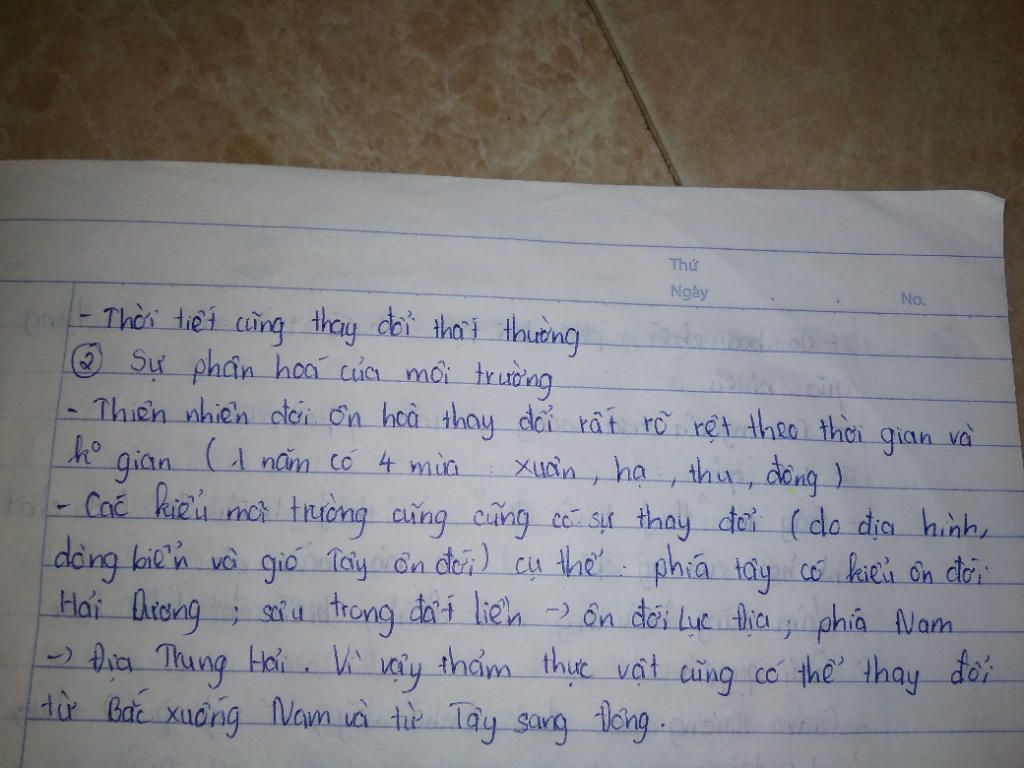 Thứ
Ngày . . No.
- Thời tiết cũng thay đổi thất thường
② Sự phân hoá của môi trường
- Thiên nhiên đới ôn hoà thay đổi rất rõ rệt theo thời gian và
k° gian ( 1 năm có 4 mùa : xuân, hạ, thu, đông )
- Các kiểu môi trường cũng cũng có sự thay đổi ( do địa hình,
dòng biển và gió Tây ôn đới) cụ thể : phía tây có kiểu ôn đới
Hải Dương ; sâu trong đất liền -> ôn đới Lục Địa ; phía Nam
-> Địa Trung Hải . Vì vậy thảm thực vật cũng có thể thay đổi
từ Bắc xuống Nam và từ Tây sang Đông .